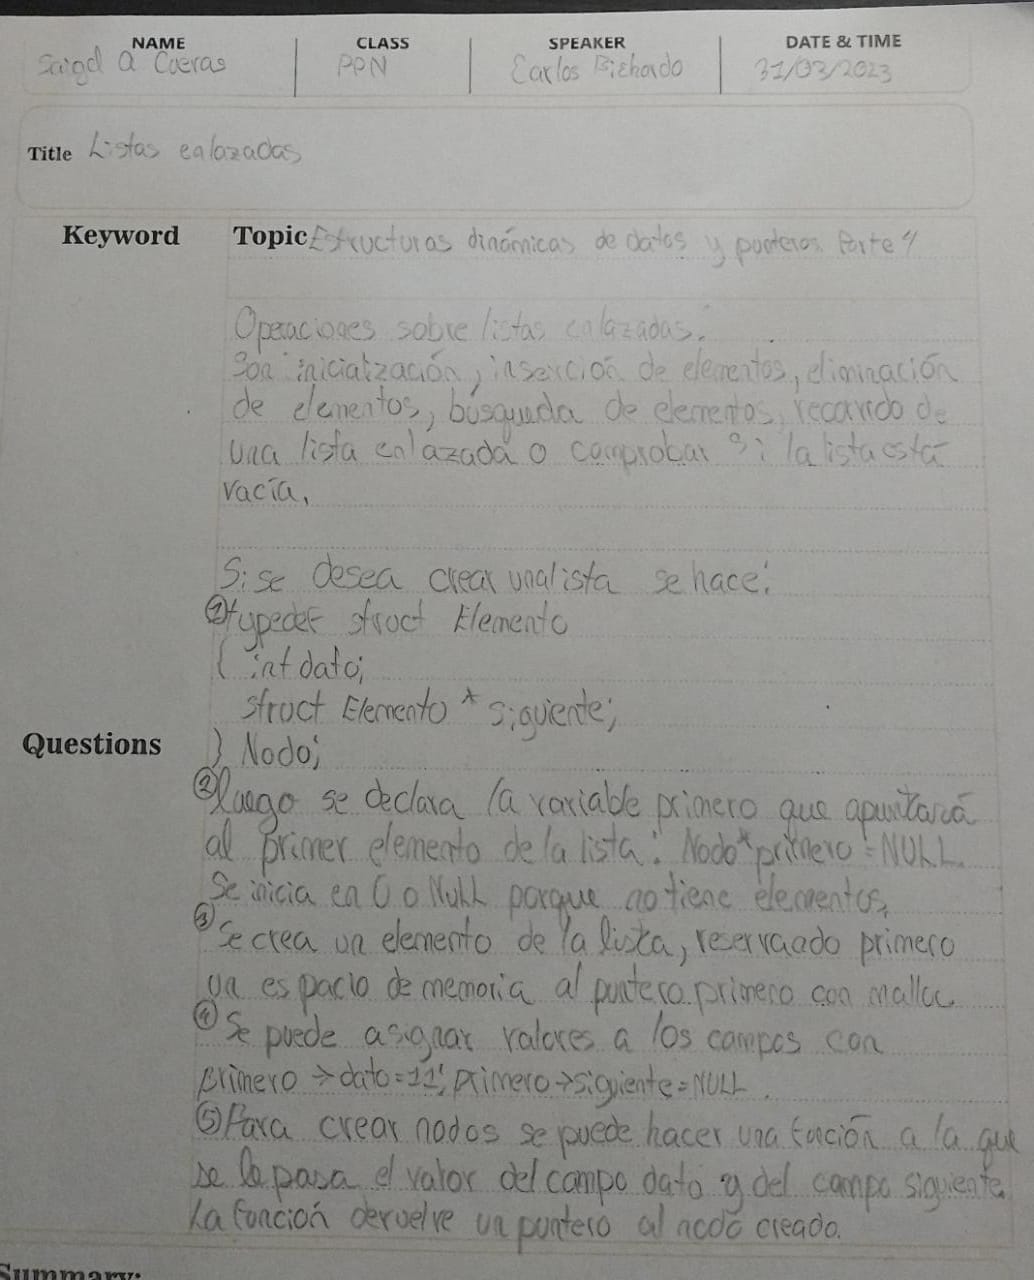 NAME CLASS SPEAKER DATE & TIME
Saigel A Cueras PPN Carlos Pichardo 31/03/2023
Title Listas enlazadas
Keyword Topic Estructuras dinámicas de datos y punteros. Parte 4
Operaciones sobre listas enlazadas:
Son inicialización, inserción de elementos, eliminación
de elementos, búsqueda de elementos, recorrido de
una lista enlazada o comprobar si la lista está
vacía.
Si se desea crear una lista se hace:
① typedef struct Elemento
{ int dato;
struct Elemento * siguiente;
Questions } Nodo;
② Luego se declara la variable primero que apuntará
al primer elemento de la lista: Nodo *primero = NULL.
Se inicia en 0 o Null porque no tiene elementos.
③ Se crea un elemento de la lista, reservando primero
un espacio de memoria al puntero primero con malloc
④ Se puede asignar valores a los campos con
primero → dato = 11; primero → siguiente = NULL.
⑤ Para crear nodos se puede hacer una función a la que
se le pasa el valor del campo dato y del campo siguiente.
La función devuelve un puntero al nodo creado.
Summary: